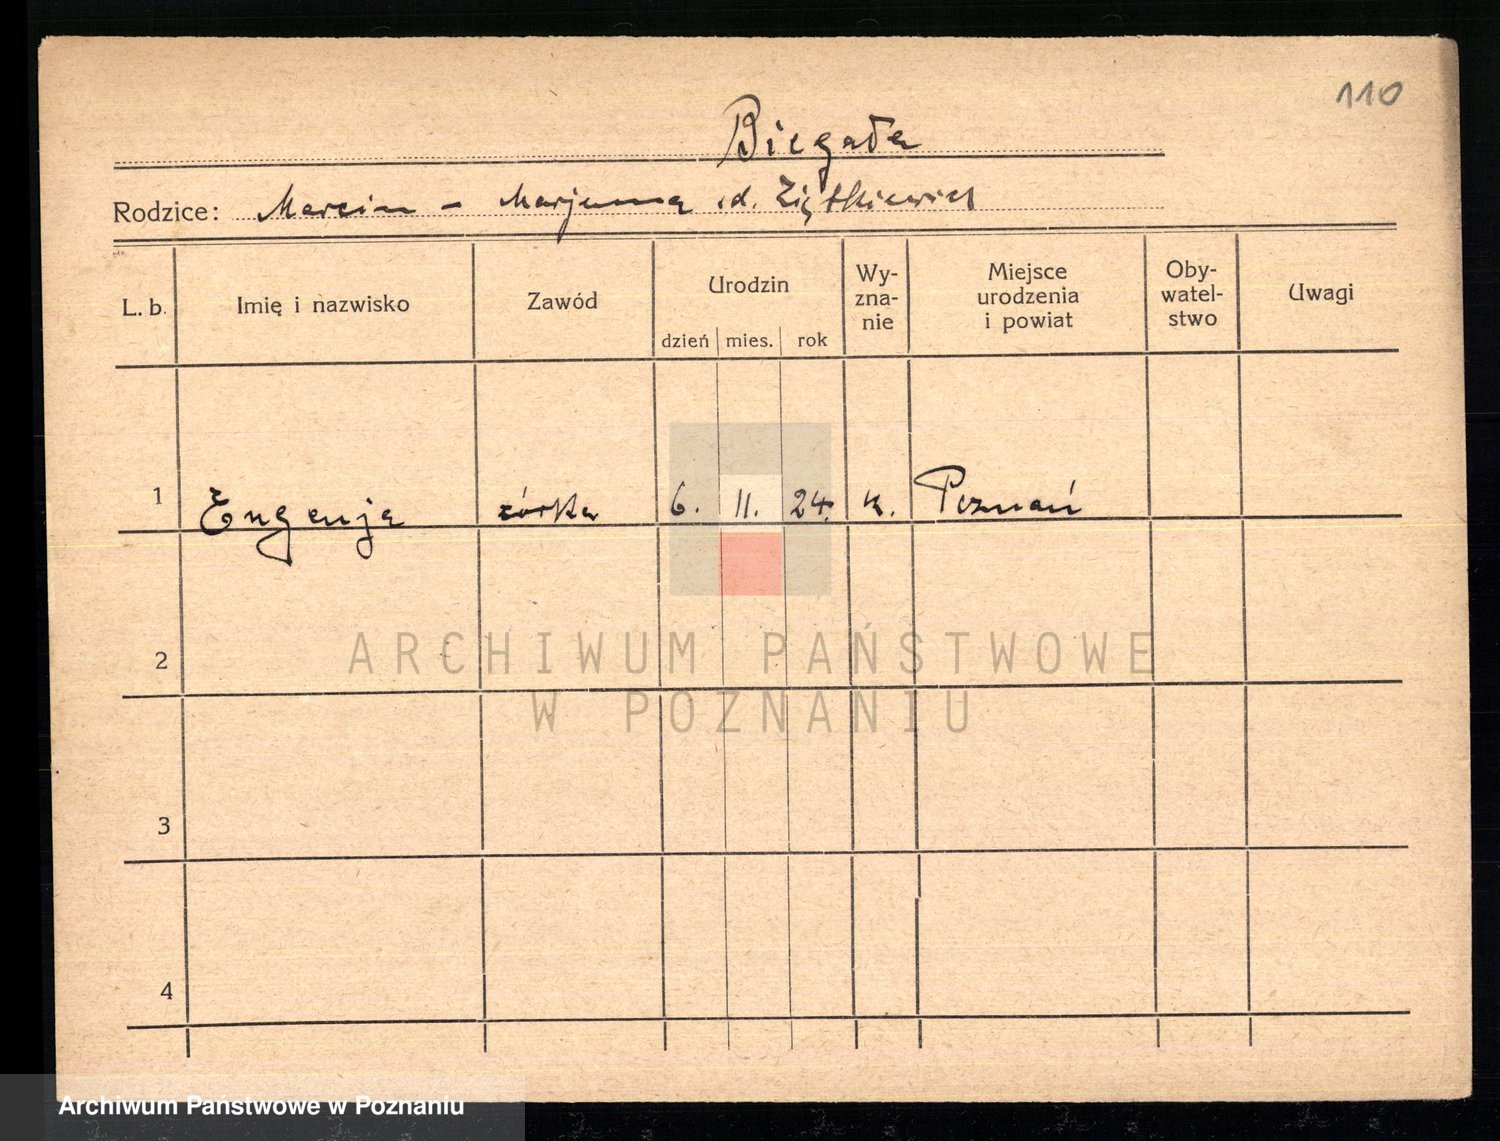 110
Biegała
Rodzice: Marcin - Marjanna zd. Ziętkiewicz
L. b. Imię i nazwisko Zawód Urodzin dzień mies. rok Wy-zna-nie Miejsce urodzenia i powiat Oby-watel-stwo Uwagi
1 Eugenja córka 6. 11. 24. k. Poznań
2
ARCHIWUM PAŃSTWOWE
W POZNANIU
3
4
Archiwum Państwowe w Poznaniu